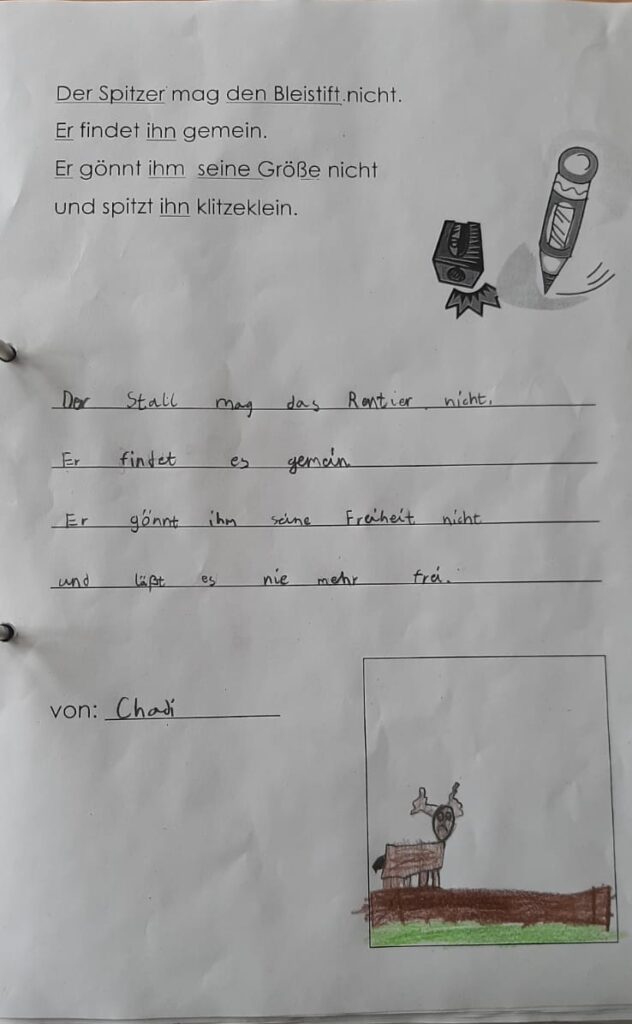 Der Spitzer mag den Bleistift nicht.
Er findet ihn gemein.
Er gönnt ihm seine Größe nicht
und spitzt ihn klitzeklein.
Der Stall mag das Rentier nicht.
Er findet es gemein
Er gönnt ihm seine Freiheit nicht
und läßt es nie mehr frei.
von: Chadi